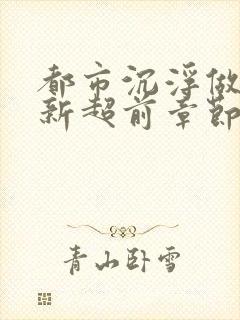 都市沉浮做
新超前章節
青山卧雪